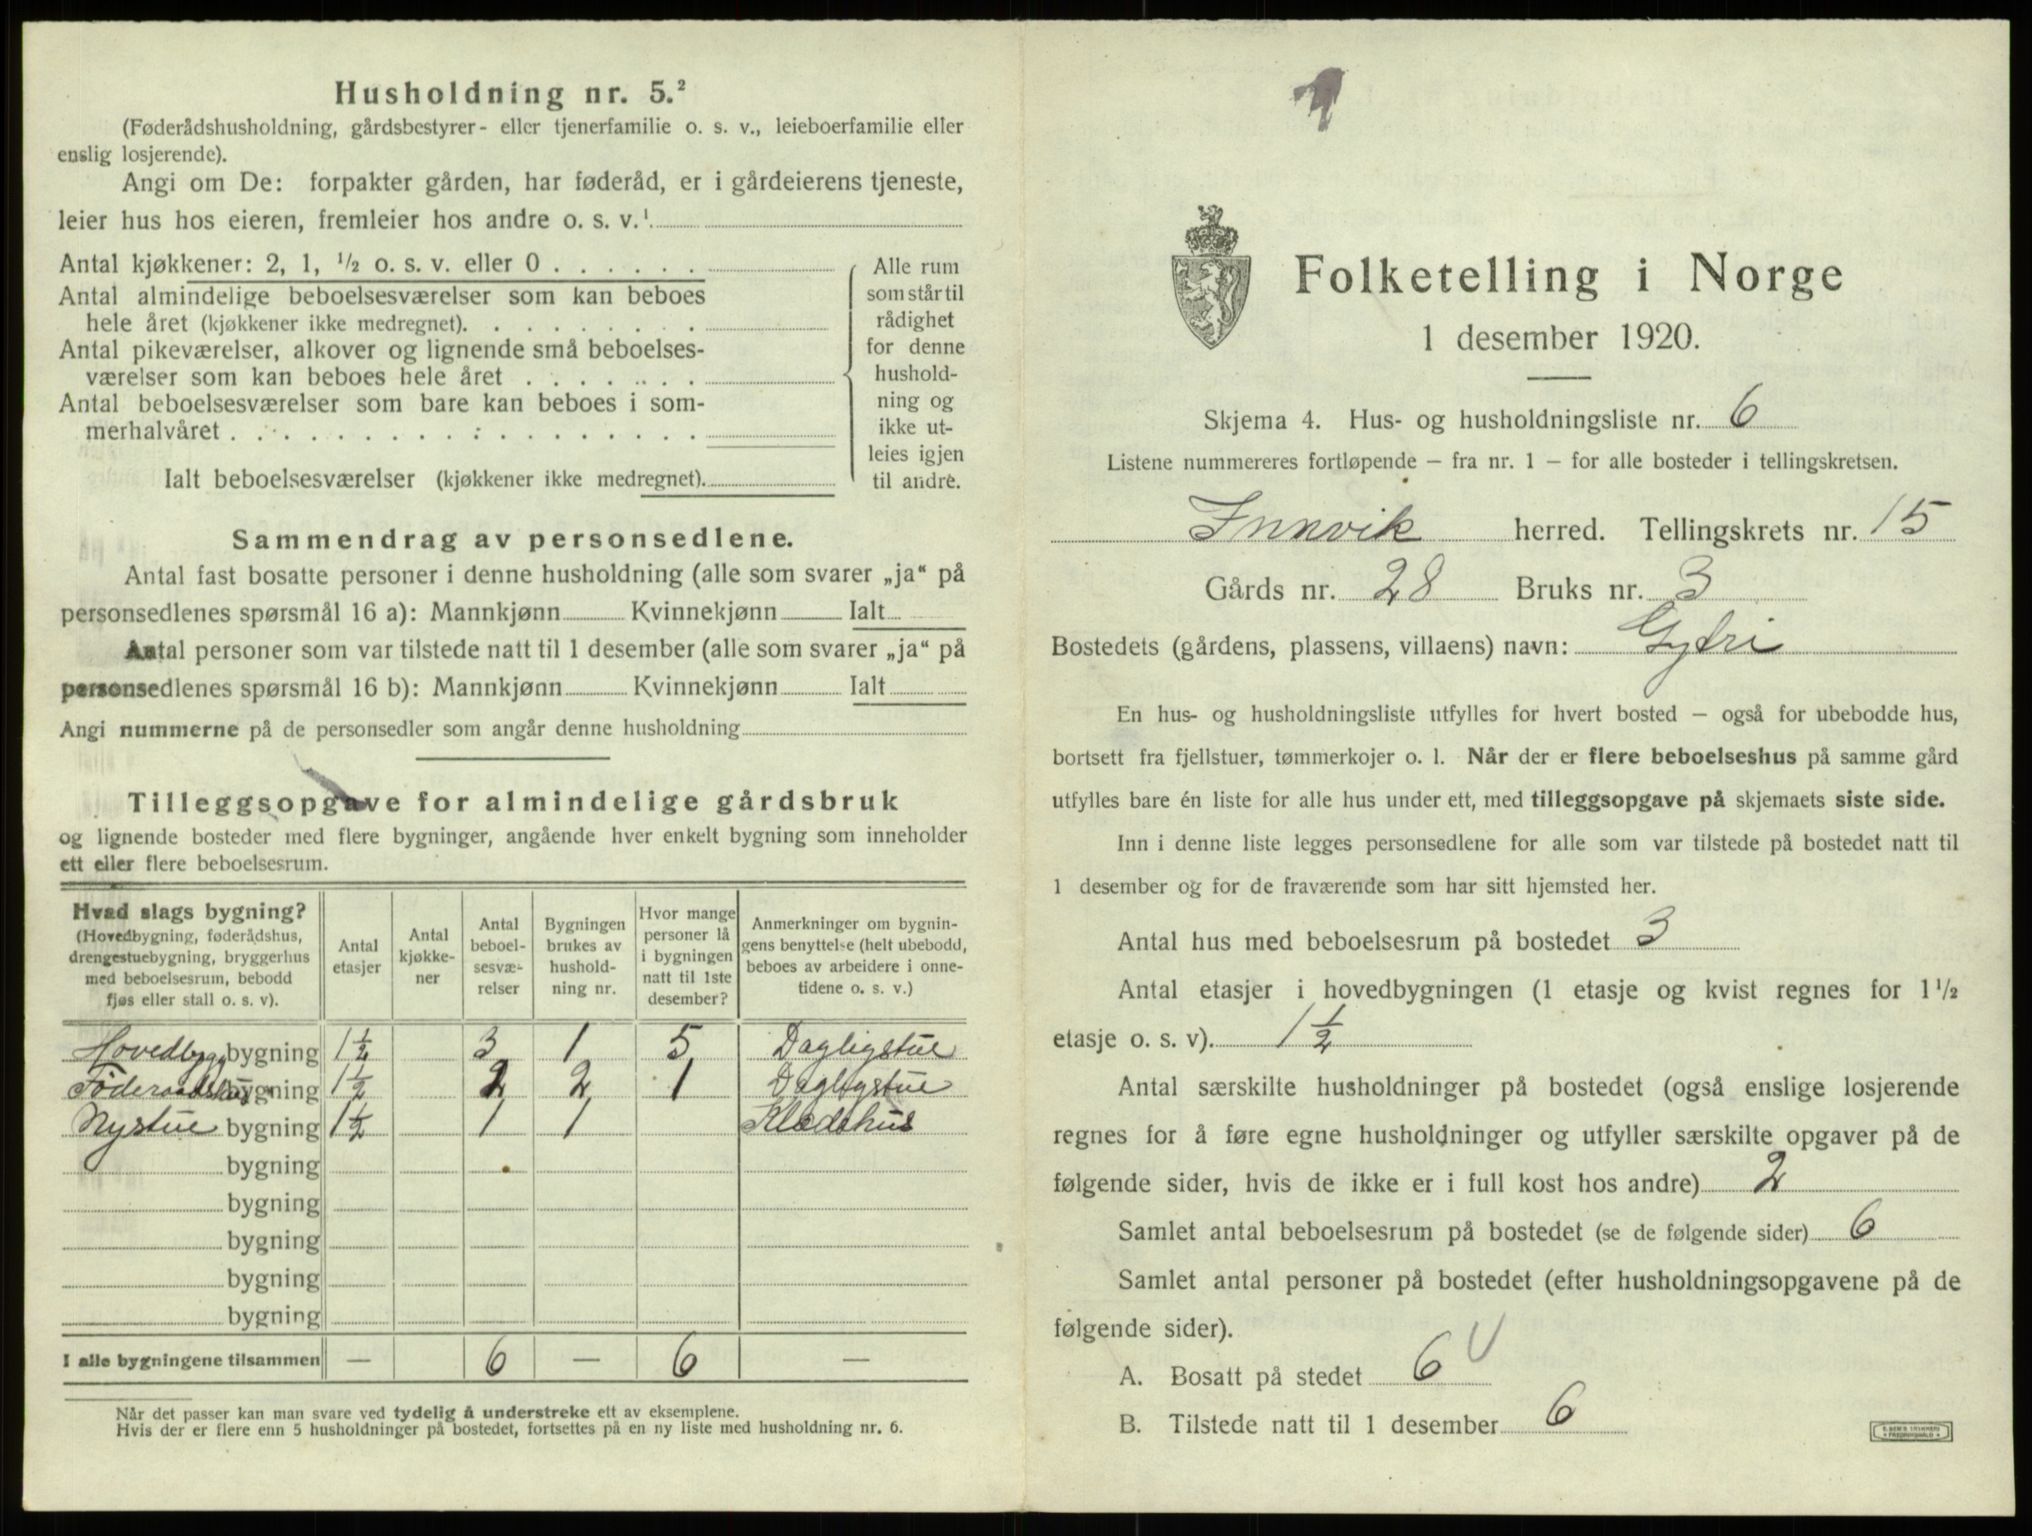 Husholdning nr. 5.²
(Føderådshusholdning, gårdsbestyrer- eller tjenerfamilie o. s. v., leieboerfamilie eller
enslig losjerende).
Angi om De: forpakter gården, har føderåd, er i gårdeierens tjeneste,
leier hus hos eieren, fremleier hos andre o. s. v.¹
Antal kjøkkener: 2, 1, ½ o. s. v. eller 0
Antal almindelige beboelsesværelser som kan beboes
hele året (kjøkkener ikke medregnet).
Antal pikeværelser, alkover og lignende små beboelses-
værelser som kan beboes hele året
Antal beboelsesværelser som bare kan beboes i som-
merhalvåret
Ialt beboelsesværelser (kjøkkener ikke medregnet).
Alle rum
som står til
rådighet
for denne
hushold-
ning og
ikke ut-
leies igjen
til andre.
Sammendrag av personsedlene.
Antal fast bosatte personer i denne husholdning (alle som svarer „ja“ på
personsedlenes spørsmål 16 a): Mannkjønn Kvinnekjønn Ialt
Antal personer som var tilstede natt til 1 desember (alle som svarer „ja“ på
personsedlenes spørsmål 16 b): Mannkjønn Kvinnekjønn Ialt
Angi nummerne på de personsedler som angår denne husholdning
Tilleggsopgave for almindelige gårdsbruk
og lignende bosteder med flere bygninger, angående hver enkelt bygning som inneholder
ett eller flere beboelsesrum.
Hvad slags bygning?
(Hovedbygning, føderådshus,
drengestuebygning, bryggerhus
med beboelsesrum, bebodd
fjøs eller stall o. s. v).
Antal
etasjer
Antal
kjøkke-
ner
Antal
beboel-
sesvæ-
relser
Bygningen
brukes av
hushold-
ning nr.
Hvor mange
personer lå
i bygningen
natt til 1ste
desember?
Anmerkninger om bygnin-
gens benyttelse (helt ubebodd,
beboes av arbeidere i onne-
tidene o. s. v.)
Hovedbygg bygning 1½ 3 1 5 Dagligstue
Föderaadshus bygning 1½ 2 2 1 Dagligstue
Nystue bygning 1½ 1 1 Klædehus
bygning
bygning
bygning
bygning
bygning
I alle bygningene tilsammen — 6 — 6 —
Når det passer kan man svare ved tydelig å understreke ett av eksemplene.
Hvis der er flere enn 5 husholdninger på bostedet, fortsettes på en ny liste med husholdning nr. 6.
Folketelling i Norge
1 desember 1920.
Skjema 4. Hus- og husholdningsliste nr. 6
Listene nummereres fortløpende – fra nr. 1 – for alle bosteder i tellingskretsen.
Innvik herred. Tellingskrets nr. 15
Gårds nr. 28 Bruks nr. 3
Bostedets (gårdens, plassens, villaens) navn: Gytri
En hus- og husholdningsliste utfylles for hvert bosted – også for ubebodde hus,
bortsett fra fjellstuer, tømmerkojer o. l. Når der er flere beboelseshus på samme gård
utfylles bare én liste for alle hus under ett, med tilleggsopgave på skjemaets siste side.
Inn i denne liste legges personsedlene for alle som var tilstede på bostedet natt til
1 desember og for de fraværende som har sitt hjemsted her.
Antal hus med beboelsesrum på bostedet 3
Antal etasjer i hovedbygningen (1 etasje og kvist regnes for 1½
etasje o. s. v). 1½
Antal særskilte husholdninger på bostedet (også enslige losjerende
regnes for å føre egne husholdninger og utfyller særskilte opgaver på de
følgende sider, hvis de ikke er i full kost hos andre) 2
Samlet antal beboelsesrum på bostedet (se de følgende sider) 6
Samlet antal personer på bostedet (efter husholdningsopgavene på de
følgende sider).
A. Bosatt på stedet 6
B. Tilstede natt til 1 desember 6